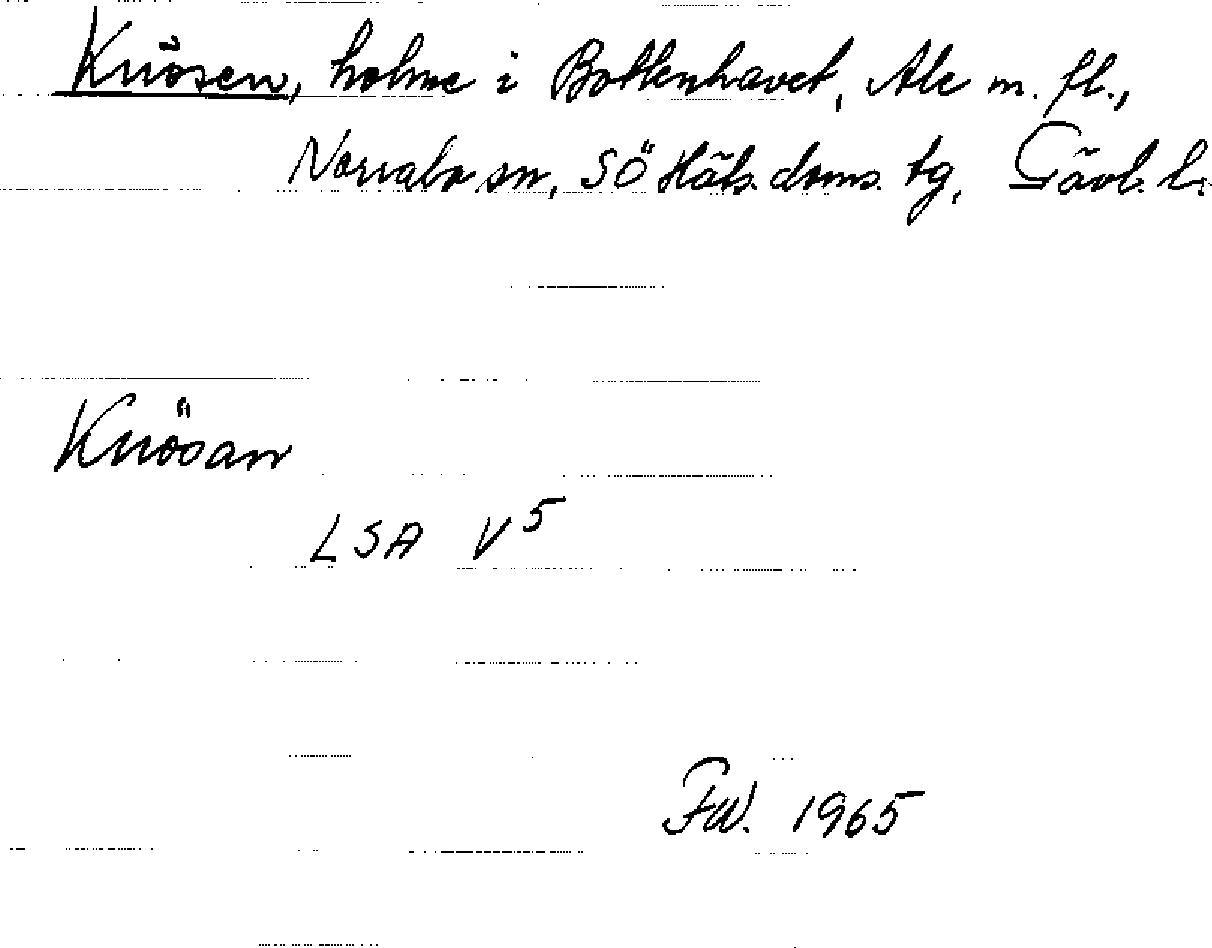 Knösen, holme i Bottenhavet, Ale m. fl.,
Norrala sn, SÖ Häls. doms. tg, Gävl. l.
Knösan
LSA V5
Fw. 1965